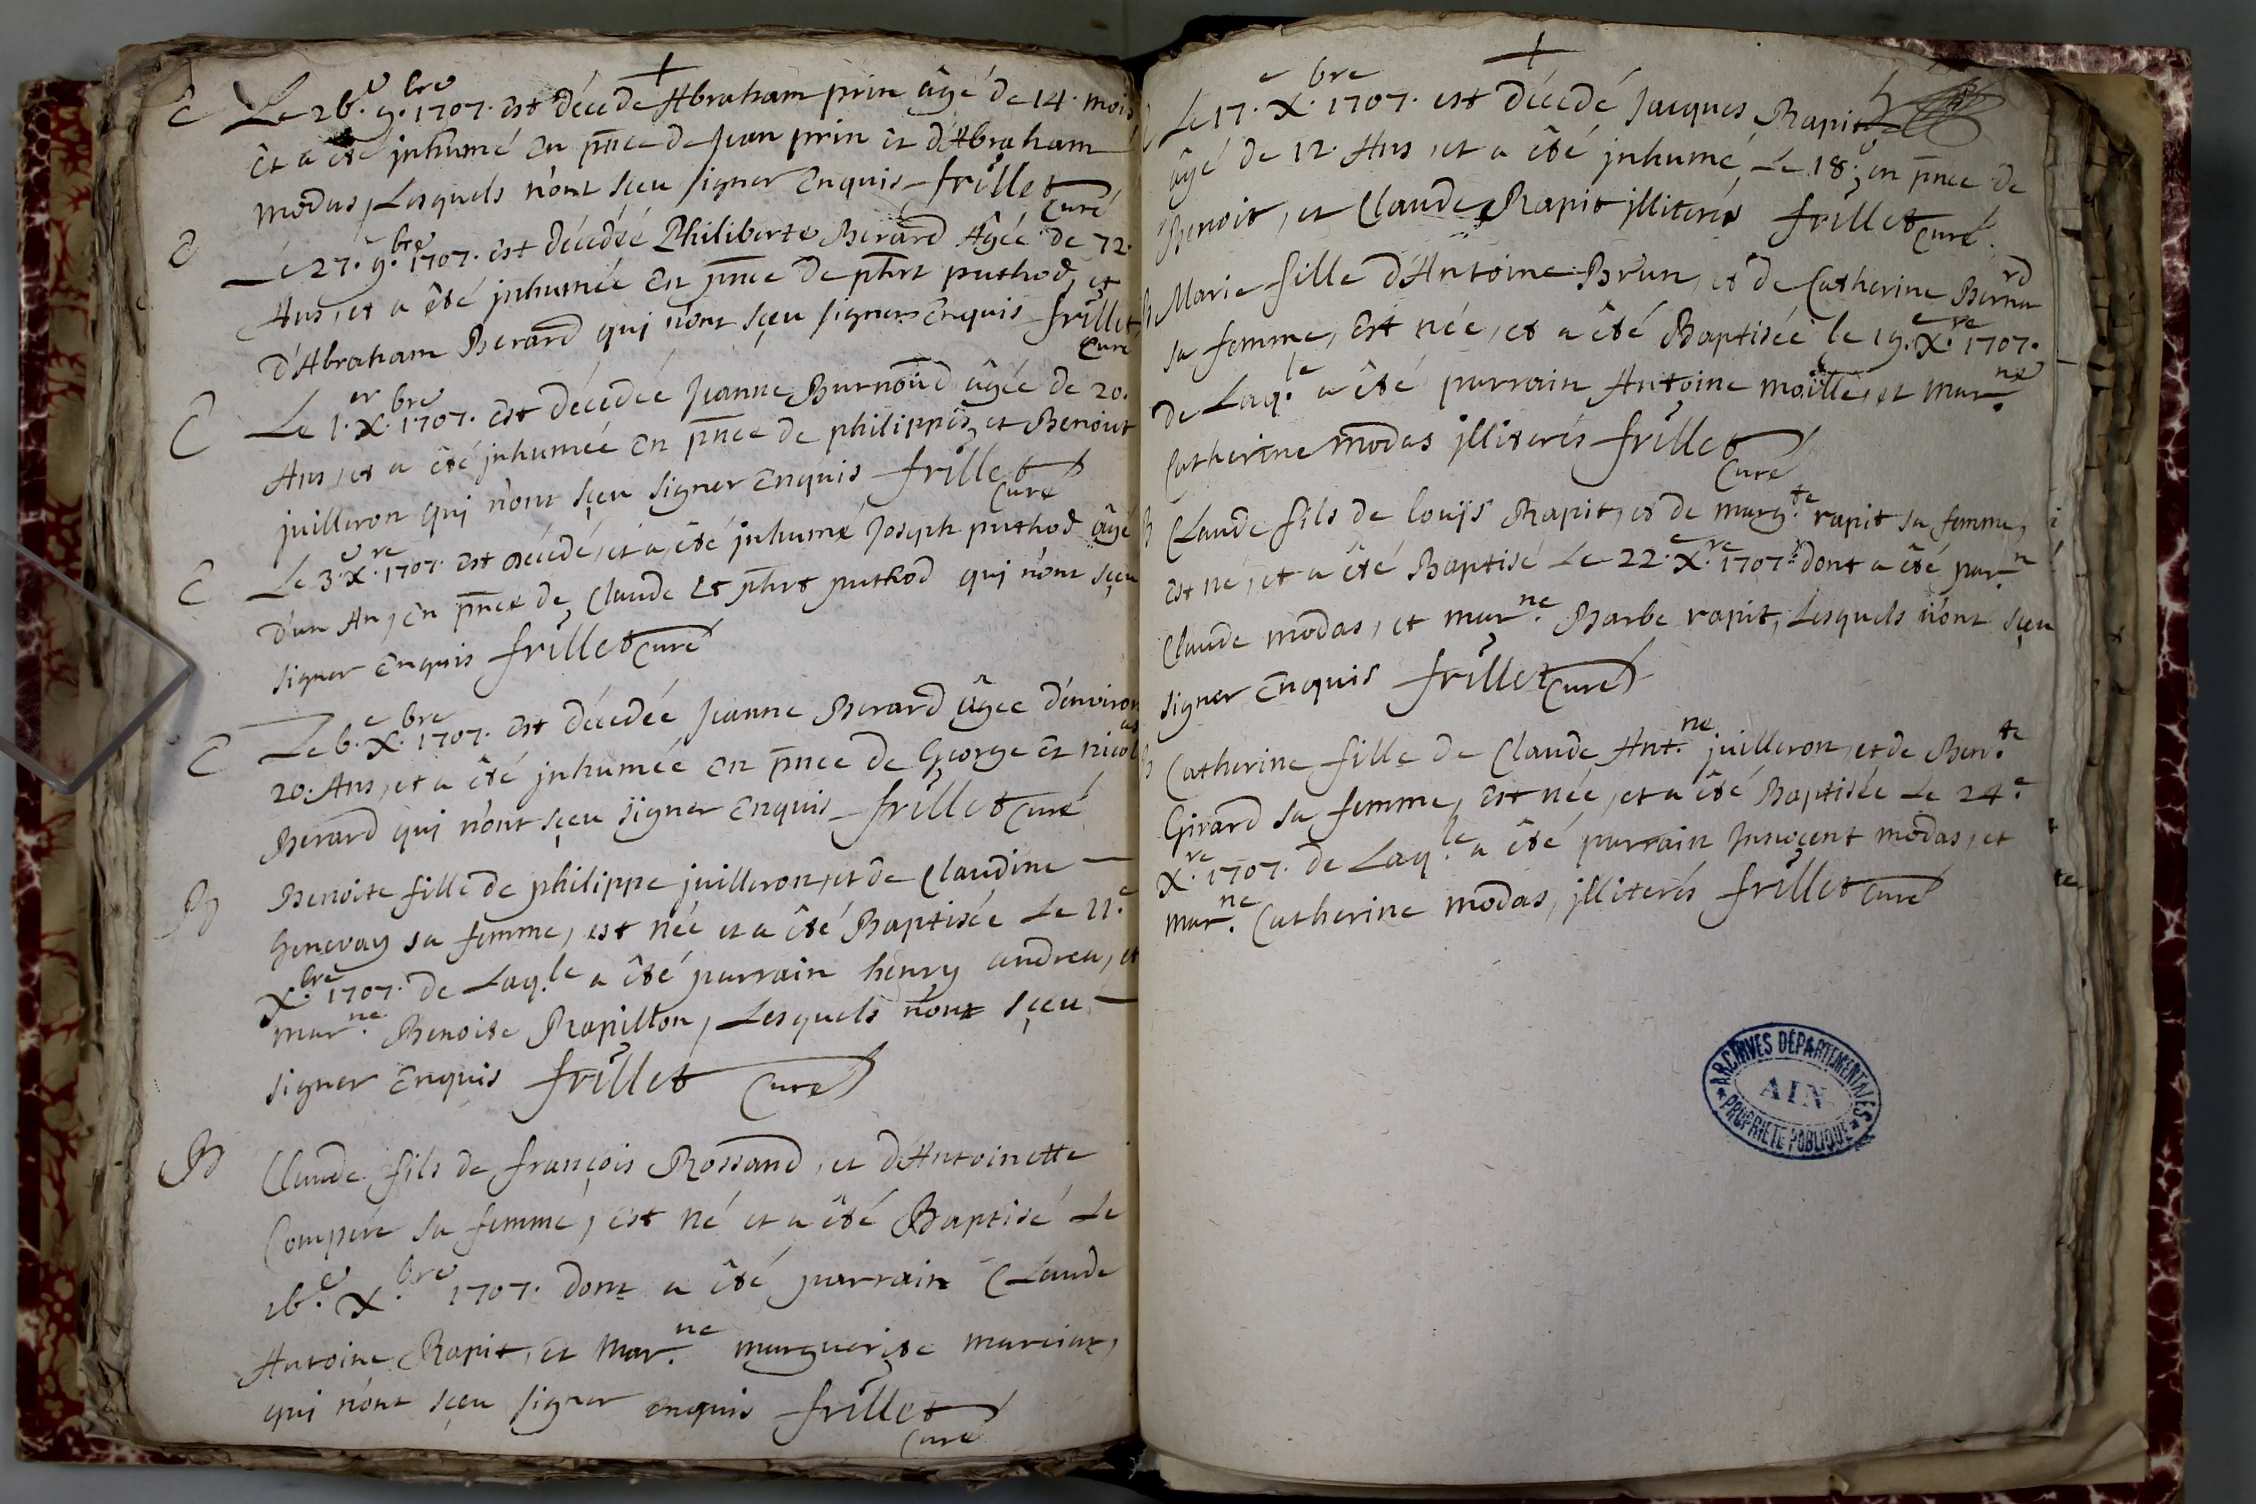 +
E Le 26.e 9.bre 1707. est décedé Abraham prin âgé de 14. mois
Et a été jnhumé En pnce de Jean prin et d'Abraham
modas, Lesquels n'ont sçeu signer Enquis frillet
Curé
E Le 27.e 9.bre 1707. est décedée Philiberte Berard Agée de 72.
Ans, et a été jnhumée En pnce de phrt puthod, et
d'Abraham Berard qui n'ont sçeu signer Enquis frillet
Curé
E Le 1.er X.bre 1707. est décedée Jeanne Burnoud âgée de 20.
Ans, et a été jnhumée En pnce de philippes, et Benoist
juilleron qui n'ont sçeu signer Enquis frillet
Curé
E Le 3.e X.re 1707. est décedé, et a été jnhumé Joseph puthod âgé
d'un An, En pnce de Claude Et phrt puthod qui n'ont sçeu
signer Enquis frillet Curé
E Le 6.e X.bre 1707. est décedée Jeanne Berard âgée d'environ
20. Ans, et a été jnhumée En pnce de George Et nicolas
Berard qui n'ont sçeu signer Enquis frillet Curé
B Benoite fille de philippe juilleron, et de Claudine
Genevay sa femme, est née et a été Baptisée Le 11.e
X.bre 1707. de Laq.le a été parrain henry andrea, et
mar.ne Benoite Rapillon, Lesquels n'ont sçeu
signer Enquis frillet Curé
B Claude fils de françois Rossand, et d'Antoinette
Compere sa femme, est né et a été Baptisé Le
16.e X.bre 1707. dont a été parrain Claude
Antoine Rapit, et Mar.ne marguerite marciat,
qui n'ont sçeu signer enquis frillet
Curé
+
Le 17.e X.bre 1707. est décedé Jacques Rapit
âgé de 12. Ans, et a été jnhumé, Le 18.e en pnce de
Benoit, et Claude Rapit jlliterés frillet Curé
B Marie fille d'Antoine Brun, et de Catherine Bernard
sa femme, Est née, et a été Baptisée le 19.e X.re 1707.
de Laq.le a été parrain Antoine moïlle, et mar.ne
Catherine modas jlliterés frillet
Curé
B Claude fils de louïs Rapit, et de marg.te rapit sa femme,
est né, et a été Baptisé Le 22.e X.re 1707. dont a été par.n
Claude modas, et mar.ne Barbe rapit, Lesquels n'ont sçeu
signer Enquis frillet Curé
B Catherine fille de Claude Ant.ne juilleron, et de Ben.te
Girard sa femme, Est née, et a été Baptisée Le 24.e
X.re 1707. de Laq.le a été parrain Jnnocent modas, et
mar.ne Catherine modas, jlliterés frillet Curé
ARCHIVES DÉPARTEMENTALES
AIN
PROPRIÉTÉ PUBLIQUE